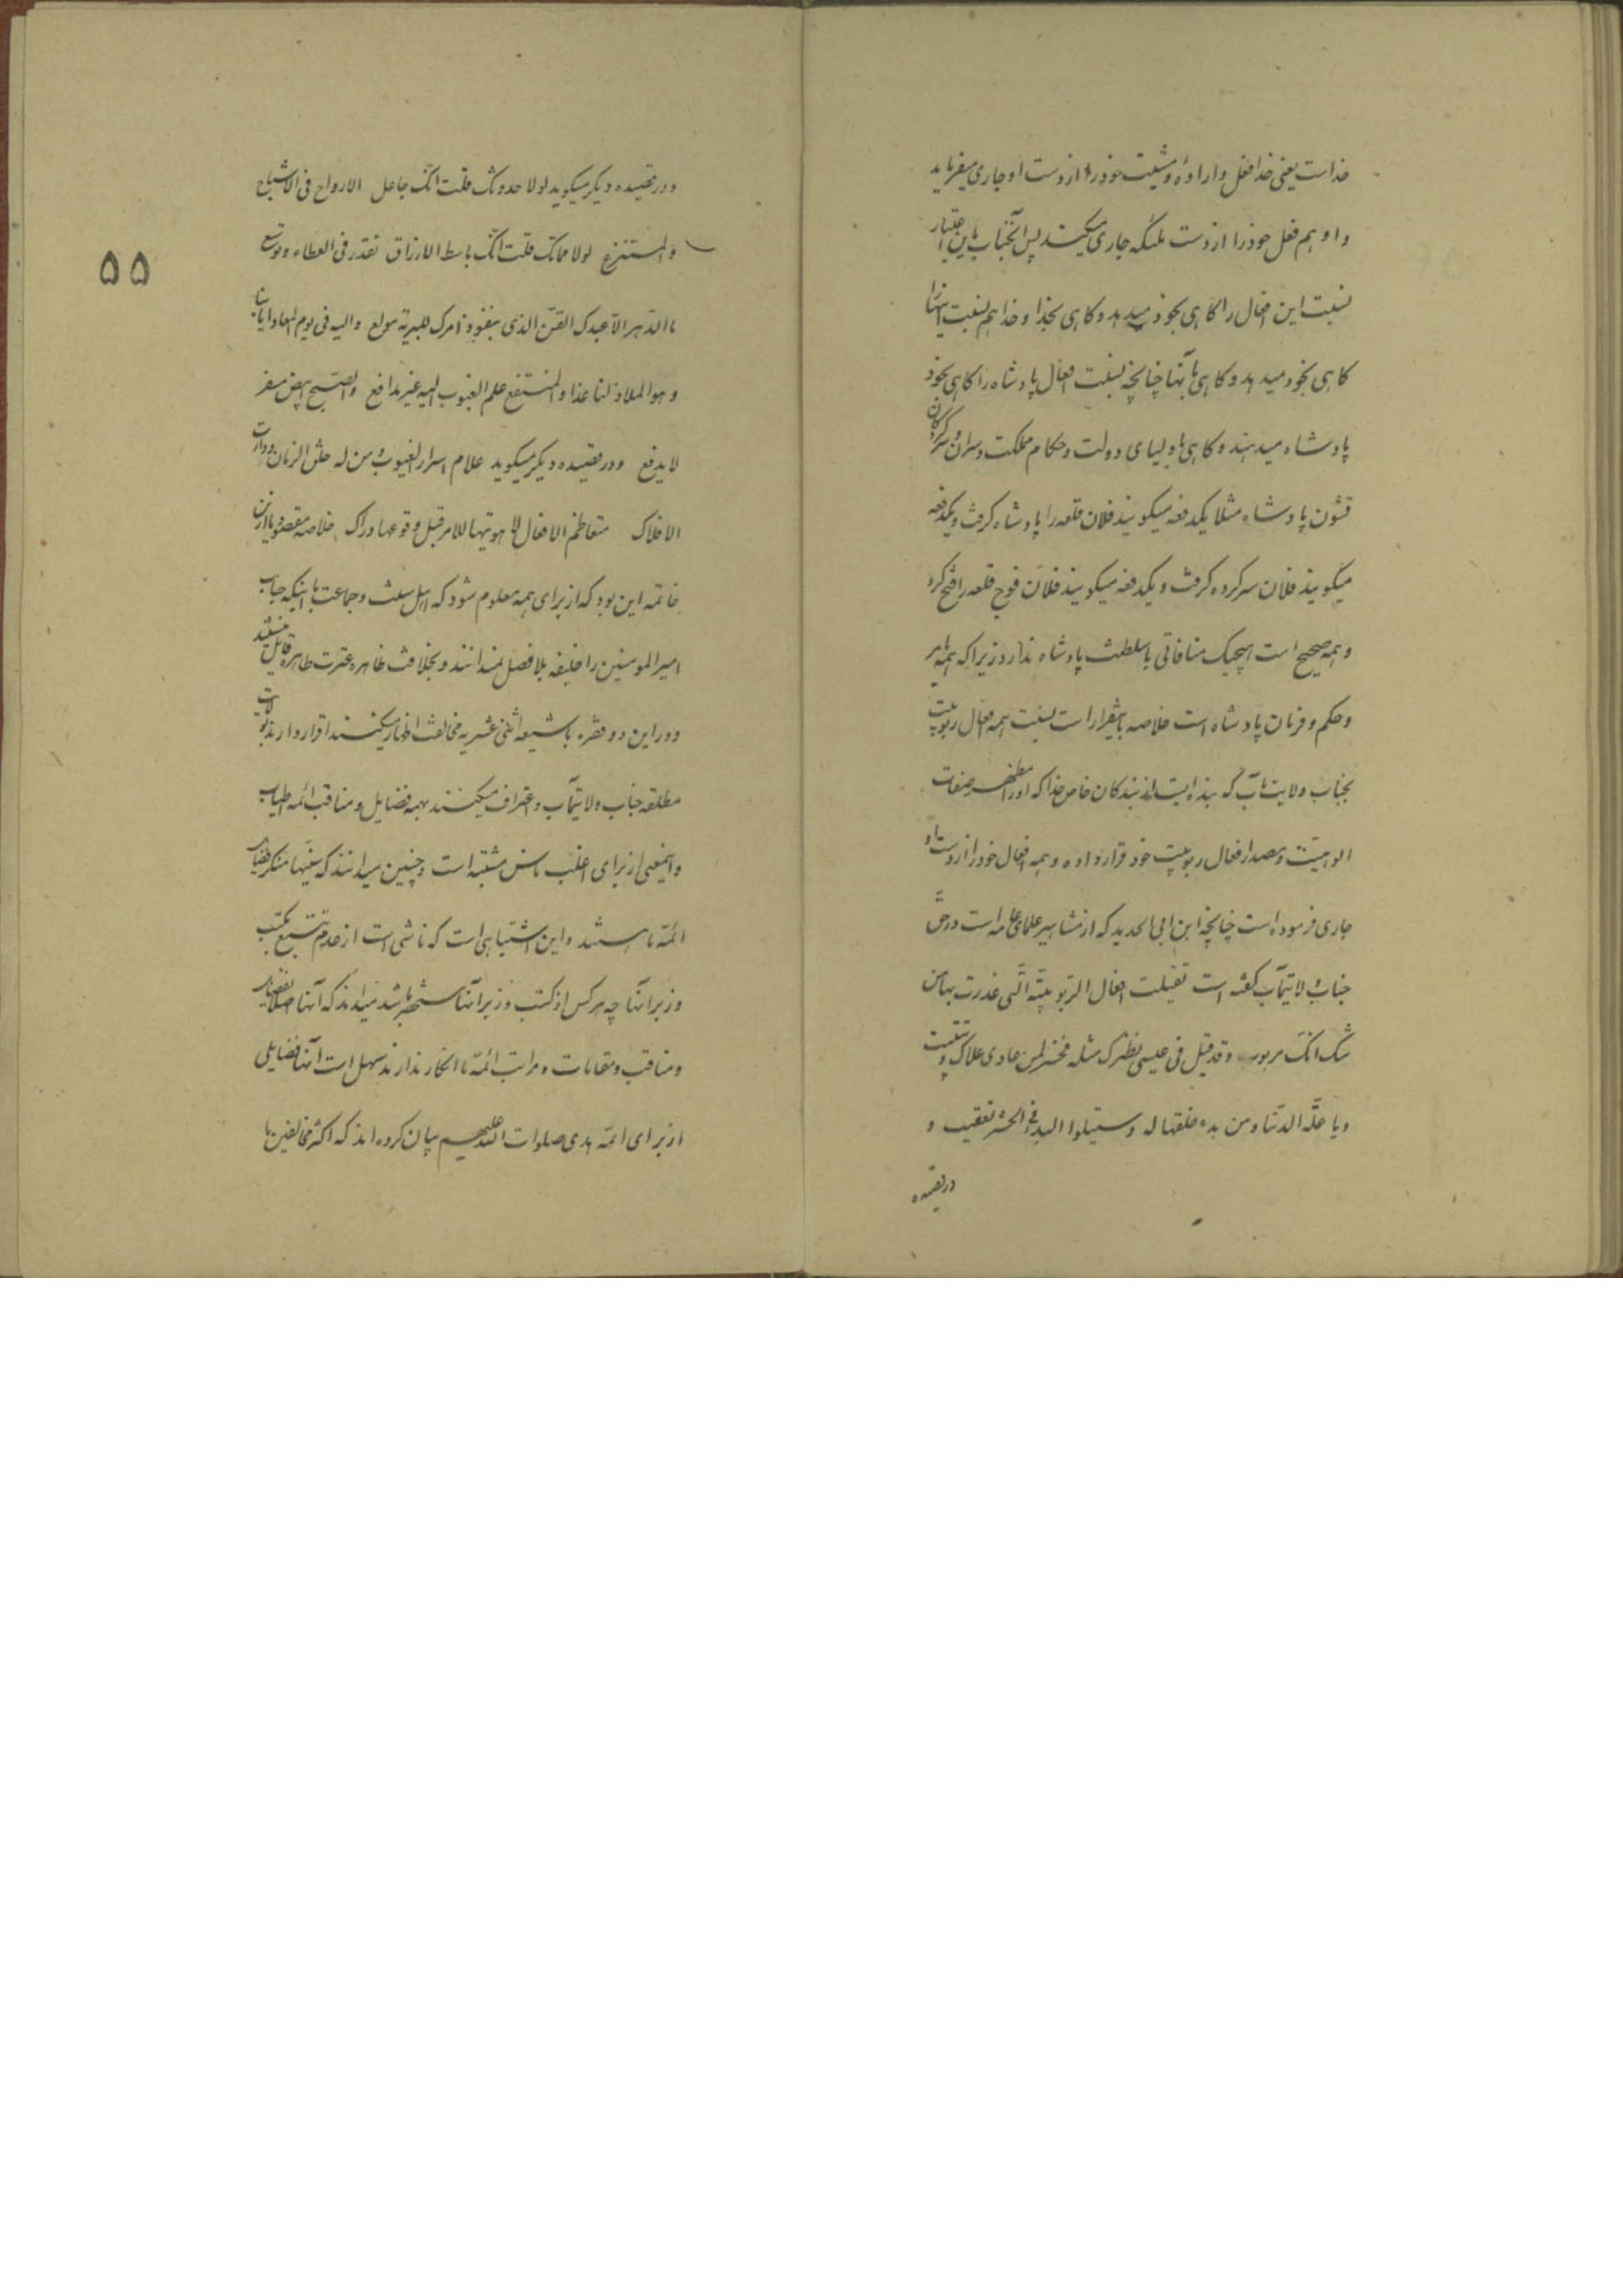 خداست یعنی خدا فعل و اراده و مشیت خود را از دست او جاری میفرماید
و او هم فعل خود را از دست ملئکه جاری میکند پس آنجناب باین اعتبار
نسبت این افعال را کاهی بخود میدهد و کاهی بخدا و خدا هم نسبت اینها را
کاهی بخود میدهد و کاهی بآنها چنانچه نسبت افعال پادشاه را کاهی بخود
پادشاه میدهند و کاهی باولیای دولت و حکام مملکت و سران و سرکردکان
قشون پادشاه مثلا یکدفعه میکویند فلان قلعه را پادشاه کرفت و یکدفعه
میکویند فلان سرکرده کرفت و یکدفعه میکویند فلان فوج قلعه را فتح کرد
و همه صحیح است هیچیک منافاتی با سلطنت پادشاه ندارد زیرا که همه بامر
و حکم و فرمان پادشاه است خلاصه باینقرار است نسبت همه افعال ربوبیت
بجناب ولایتمآب که بنده ایست از بندکان خاص خدا که او را مظهر صفات
الوهیت و مصدر افعال ربوبیت خود قرار داده و همه افعال خود را از دست او
جاری فرموده است چنانچه ابن ابی الحدید که از مشاهیر علمای عامه است در حق
جناب ولایتمآب کفته است تقیلت افعال الربوبیّة الّتی عذرت بها من
شک انّک مربوب و قد قیل فی عیسی نظیرک مثله فخسر لمن عادی علاک و تتبیب
و یا علّة الدّنیا و من بدء خلقها له و سیتلوا البدء فی الحشر تعقیب و
در قصیده
۵۵
و در قصیده دیکر میکوید لولا حدوثک قلت انّک جاعل الارواح فی الاشباح
و المستنزع لولا مماتک قلت انّک باسط الارزاق تقدر فی العطاء و توسع
ما الدّهر الاّ عبدک القنّ الذی بنفوذ امرک للبریّة مولع و الیه فی یوم المعاد ایابنا
و هو الملاذ لنا غدا و المستفع علم الغیوب الیه غیر مدافع و الصّبح ابیض مسفر
لا یدفع و در قصیده دیکر میکوید علام اسرار الغیوب و من له خلق الزمان و دارت
الافلاک متعاظم الافعال لاهوتیها للامر قبل وقوعها دراک خلاصه مقصود ما از این
خاتمه این بود که از برای همه معلوم شود که اهل سنت و جماعت با اینکه جناب
امیرالمومنین را خلیفه بلا فصل نمیدانند و بخلافت ظاهره عترت طاهره قایل نیستند
و در این دو فقره با شیعه اثنی عشریه مخالفت اظهار میکنند اقرار دارند بولایت
مطلقه جناب ولایتمآب و اعتراف میکنند بهمه فضایل و مناقب ائمه اطیاب
و اینمعنی از برای اغلب ناس مشتبه است و چنین میدانند که سنّیها منکر فضایل
ائمّه ما هستند و این اشتباهی است که ناشی است از عدم تتبّع بکتب
و زبر آنها چه هر کس از کتب و زبر آنها مستحضر باشد میداند که آنها اصلا فضایل
و مناقب و مقامات و مراتب ائمّه ما انکار ندارند سهل است آنها فضایلی
از برای ائمّه هدی صلوات الله علیهم بیان کرده اند که اکثر مخالفین ما